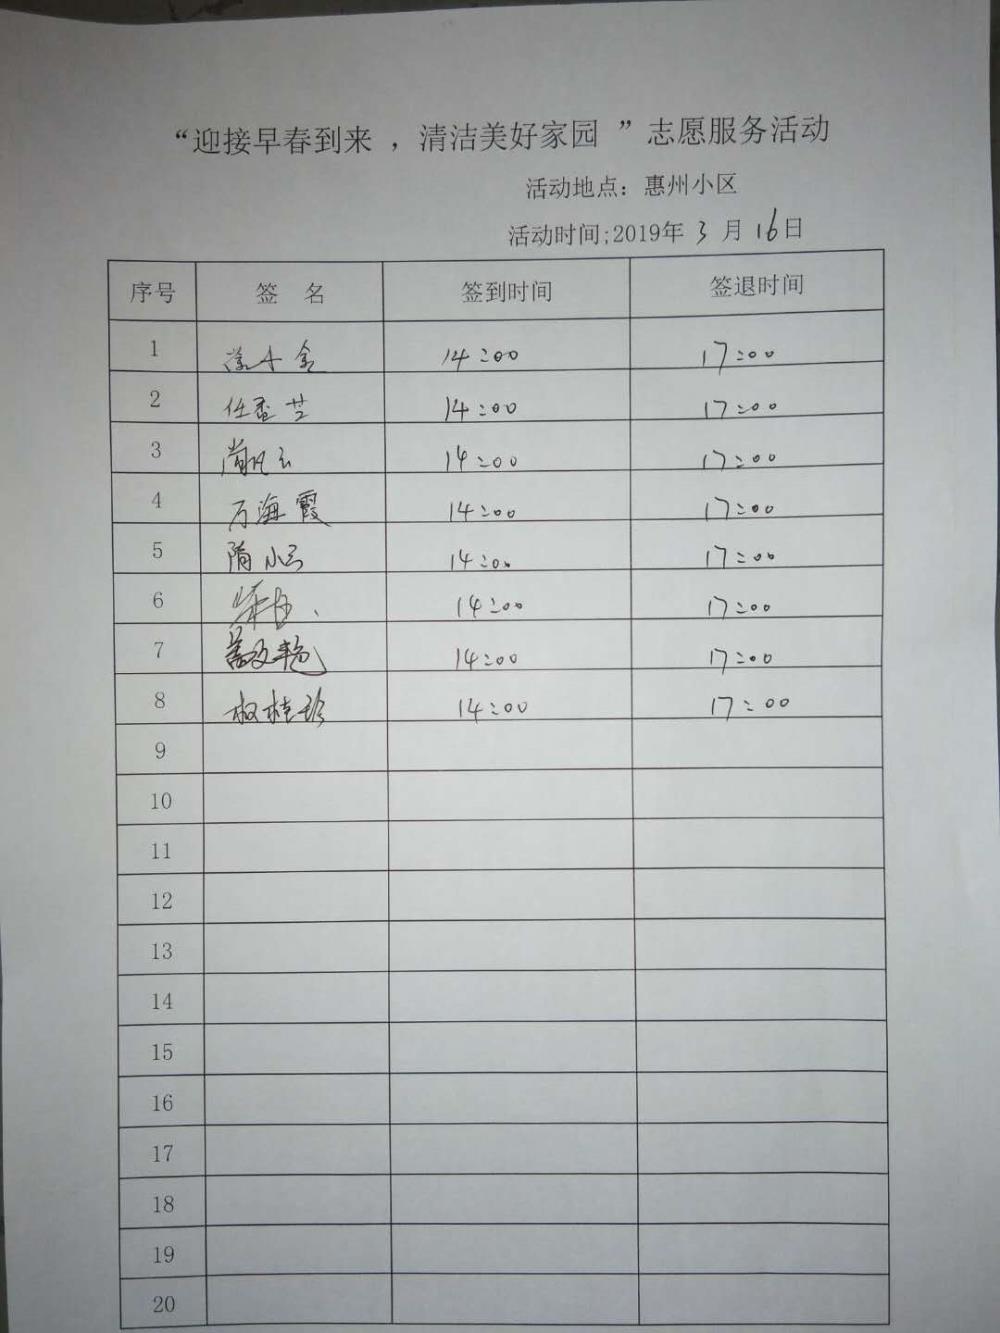 “迎接早春到来 ，清洁美好家园 ”志愿服务活动
活动地点：惠州小区
活动时间;2019年 3 月 16日
序号 签 名 签到时间 签退时间
1 14:00 17:00
2 任香芝 14:00 17:00
3 14:00 17:00
4 万海霞 14:00 17:00
5 隋小云 14:00 17:00
6 14:00 17:00
7 14:00 17:00
8 权桂珍 14:00 17:00
9
10
11
12
13
14
15
16
17
18
19
20